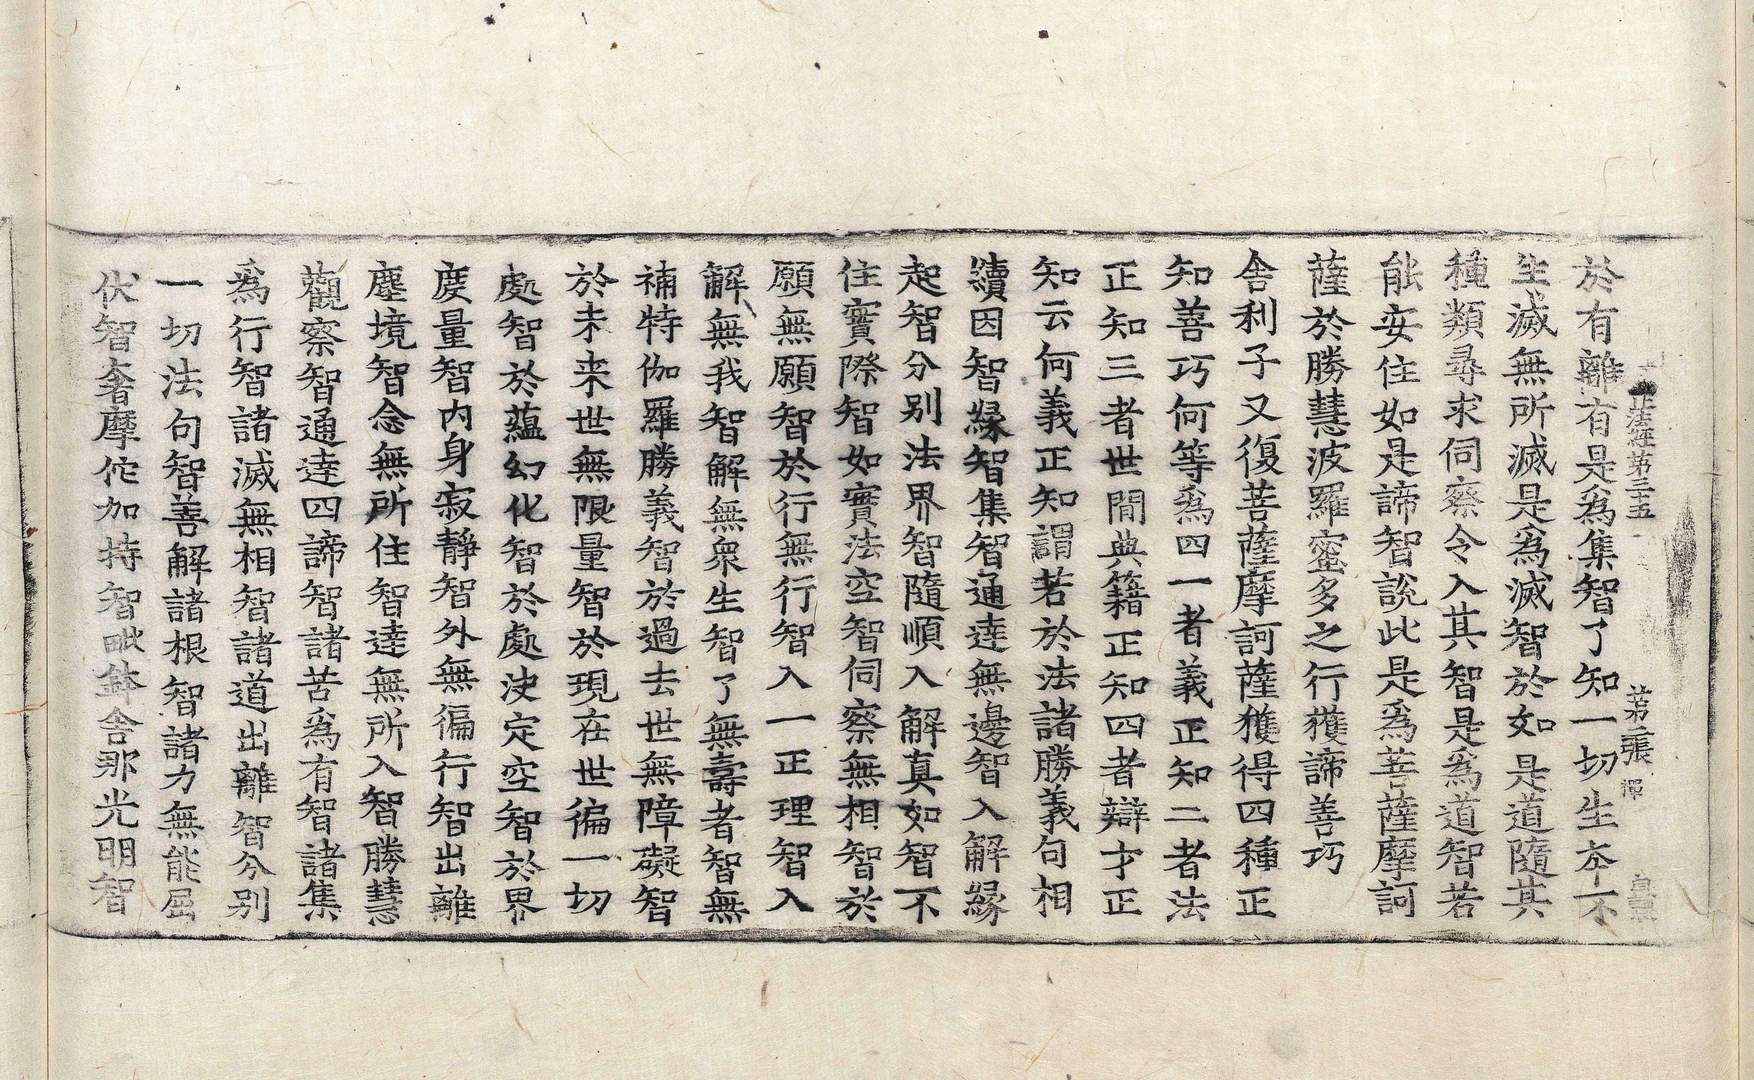 正法經第三十五
第二張
於有離有是為集智了知一切生夲不
生滅無所滅是為滅智於如是道隨其
種類尋求伺察令入其智是為道智若
能安住如是諦智說此是為菩薩摩訶
薩於勝慧波羅蜜多之行獲諦善巧
舍利子又復菩薩摩訶薩獲得四種正
知善巧何等為四一者義正知二者法
正知三者世間典籍正知四者辯才正
知云何義正知謂若於法諸勝義句相
續因智緣智集智通達無邊智入解緣
起智分別法界智隨順入解真如智不
住實際智如實法空智伺察無相智於
願無願智於行無行智入一正理智入
解無我智解無衆生智了無壽者智無
補特伽羅勝義智於過去世無障礙智
於未来世無限量智於現在世徧一切
處智於蘊幻化智於處決定空智於界
度量智內身寂靜智外無徧行智出離
塵境智念無所住智達無所入智勝慧
觀察智通達四諦智諸苦為有智諸集
為行智諸滅無相智諸道出離智分別
一切法句智善解諸根智諸力無能屈
伏智奢摩佗加持智毗鉢舍那光明智